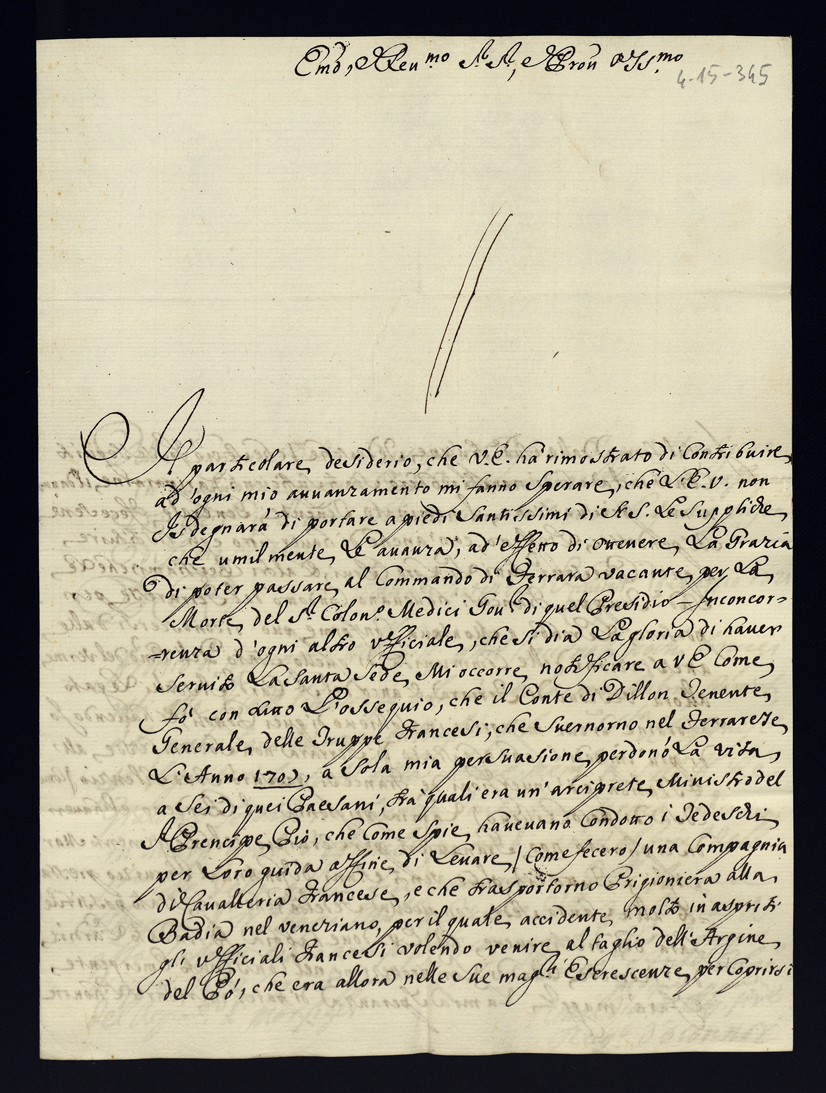 Em̃o, e Reu.mo S.r S.r, e Pron̄ Oss.mo
4-15-345
Il particolare desiderio, che V.E. hà rimostrato di Contribuire
ad'ogni mio auuanzamento mi fanno Sperare, che L'E.V. non
Isdegnarà di portare a piedi Santissimi di N.S. Le Suppliche
che umilmente Le auanza, ad'effetto di Ottenere La Grazia
di poter passare al Commando di Ferrara vacante per La
Morte del S.r Colon.o Medici Gou.r di quel Presidio Inconcor=
=renza d'ogni altro ufficiale, che Si dia La gloria di hauer
Seruito La Santa Sede, Mi occorre notificare a VE Come
fò con L'osseguio, che il Conte di Dillon Tenente
Generale delle Truppe Francesi, che Suernorno nel Ferrarese
L'Anno, a Sola mia persuasione perdonò La vita
a Sei di quei Paesani, trà quali era un'arciprete Ministro del
S.r Prencipe Pio, che Come Spie haueuano Condotto i Tedeschi
per Loro guida affine di Leuare /Come fecero/ una Compagnia
di Cavalleria Francese, e che trasportorno Prigioniera alla
Badia nel veneziano, per il quale accidente molto inaspriti
gli ufficiali Francesi volendo venire al taglio dell'Argine
del Pò, che era allora nelle Sue mag.ri Escrescenze per Coprirsi